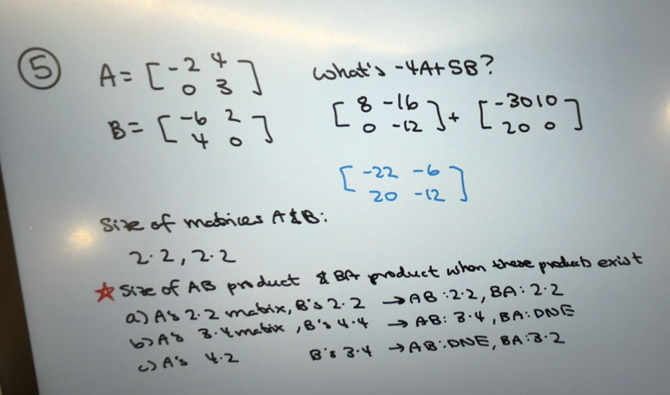 5
A = [ -2 4
0 3 ]
What's -4A+5B?
B = [ -6 2
4 0 ]
[ 8 -16
0 -12 ] + [ -30 10
20 0 ]
[ -22 -6
20 -12 ]
Size of matrices A & B:
2·2, 2·2
☆ Size of AB product & BA product when these products exist
a) A's 2·2 matrix, B's 2·2 → AB: 2·2, BA: 2·2
b) A's 3·4 matrix, B's 4·4 → AB: 3·4, BA: DNE
c) A's 4·2 B's 3·4 → AB: DNE, BA: 3·2